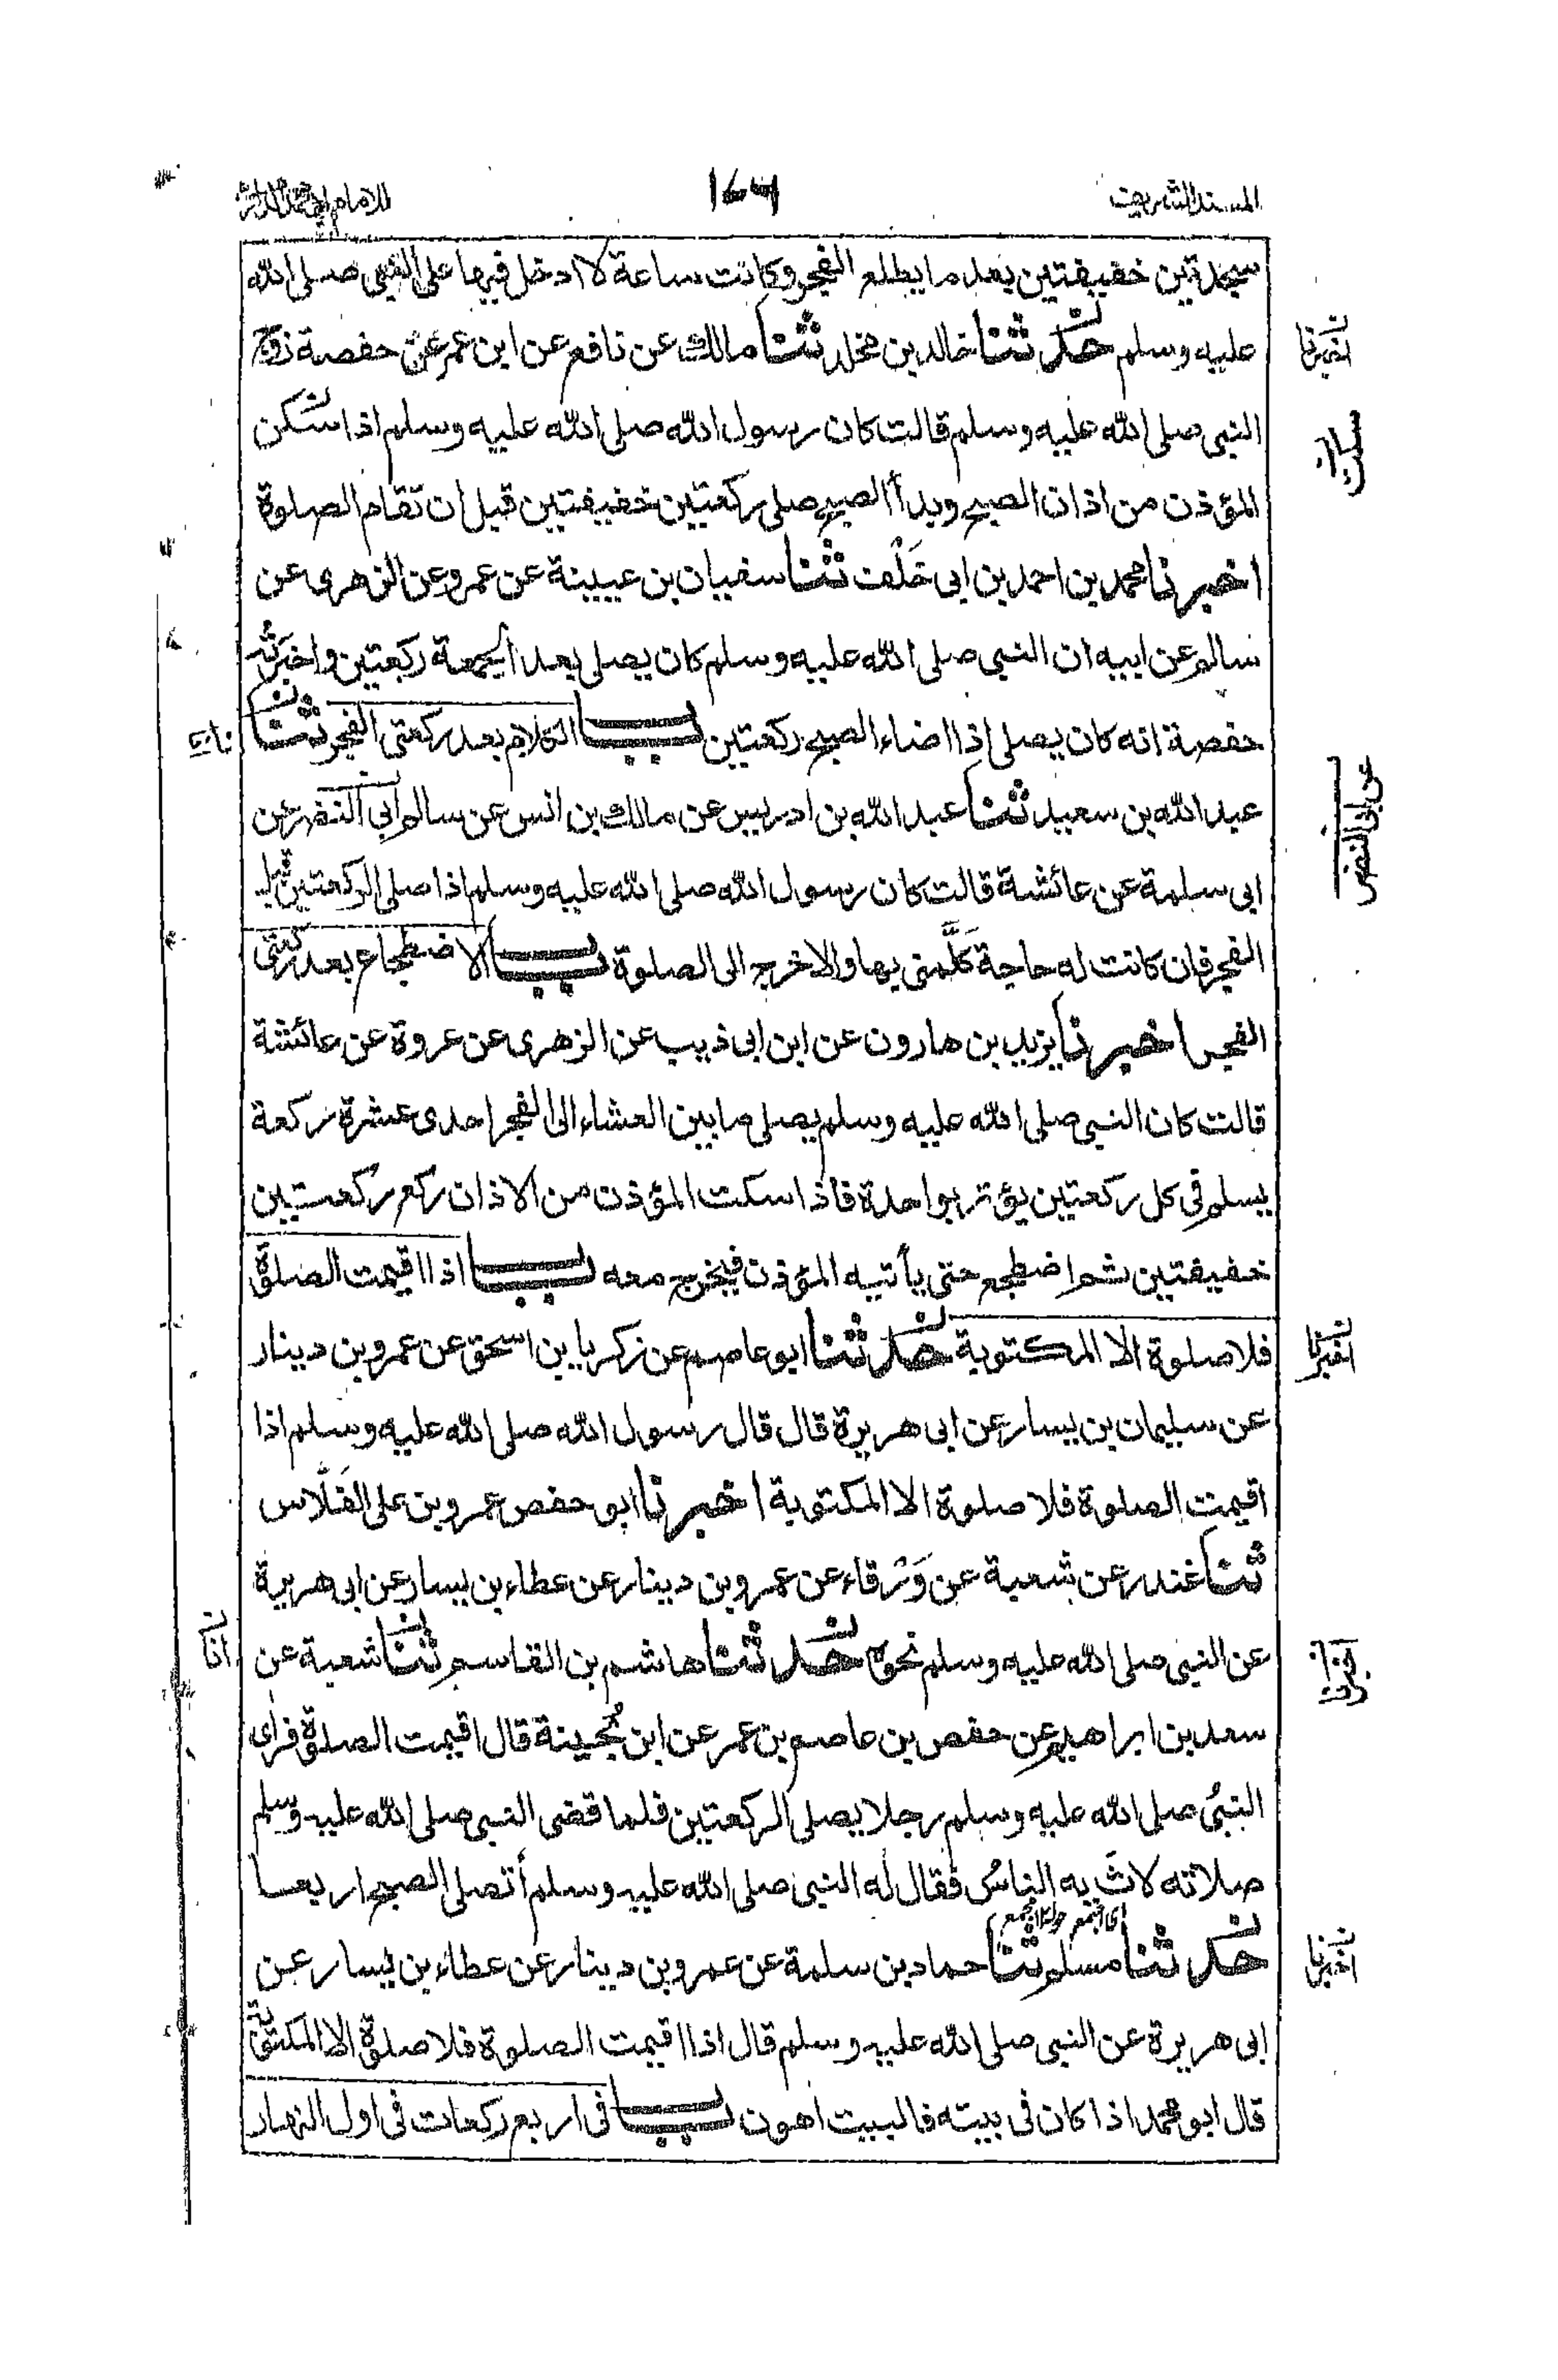 المسند الشريف
١٧٦
للامام ابى محمد الدارمى
سجدتين خفيفتين بعد ما يطلع الفجر وكانت ساعة لا ادخل فيها على النبى صلى الله
عليه وسلم حدثنا خالد بن مخلد ثنا مالك عن نافع عن ابن عمر عن حفصة زوج
النبى صلى الله عليه وسلم قالت كان رسول الله صلى الله عليه وسلم اذا سكن
المؤذن من اذان الصبح وبدأ الصبح صلى ركعتين خفيفتين قبل ان تقام الصلوة
اخبرنا محمد بن احمد بن ابى خَلَف ثنا سفيان بن عيينة عن عمرو عن الزهرى عن
سالم عن ابيه ان النبى صلى الله عليه وسلم كان يصلى بعد الجمعة ركعتين واخبرَتْه
حفصة انه كان يصلى اذا اضاء الصبح ركعتين باب الكلام بعد ركعتى الفجر ثنا
عبد الله بن سعيد ثنا عبد الله بن ادريس عن مالك بن انس عن سالم ابى النضر عن
ابى سلمة عن عائشة قالت كان رسول الله صلى الله عليه وسلم اذا صلى الركعتين قبل
الفجر فان كانت له حاجة كَلَّمنى بها والا خرج الى الصلوة باب الاضطجاع بعد ركعتى
الفجر اخبرنا يزيد بن هارون عن ابن ابى ذيب عن الزهرى عن عروة عن عائشة
قالت كان النبى صلى الله عليه وسلم يصلى ما بين العشاء الى الفجر احدى عشرة ركعة
يسلم فى كل ركعتين يؤتر بواحدة فاذا سكت المؤذن من الاذان ركع ركعتين
خفيفتين ثم اضطجع حتى يأتيه المؤذن فيخرج معه باب اذا اقيمت الصلوة
فلا صلوة الا المكتوبة حدثنا ابو عاصم عن زكريا بن اسحق عن عمرو بن دينار
عن سليمان بن يسار عن ابى هريرة قال قال رسول الله صلى الله عليه وسلم اذا
اقيمت الصلوة فلا صلوة الا المكتوبة اخبرنا ابو حفص عمرو بن على الفَلَّاس
ثنا غندر عن شعبة عن وَرقاء عن عمرو بن دينار عن عطاء بن يسار عن ابى هريرة
عن النبى صلى الله عليه وسلم نحوه حدثنا هاشم بن القاسم ثنا شعبة عن
سعد بن ابراهيم عن حفص بن عاصم بن عمر عن ابن بُحينة قال اقيمت الصلوة فراى
النبىُ صلى الله عليه وسلم رجلا يصلى الركعتين فلما قضى النبى صلى الله عليه وسلم
صلاته لاثَ به الناسُ فقال له النبى صلى الله عليه وسلم أتصلى الصبح اربعا
اى اجتمع حوله ١٢ مجمع
حدثنا مسلم ثنا حماد بن سلمة عن عمرو بن دينار عن عطاء بن يسار عن
ابى هريرة عن النبى صلى الله عليه وسلم قال اذا اقيمت الصلوة فلا صلوة الا المكتوبة
قال ابو محمد اذا كان فى بيته فالبيت اهون باب فى اربع ركعات فى اول النهار
اخبرنا
سكت
عن ابى النضر
اخبرنا
اخبرنا
انا